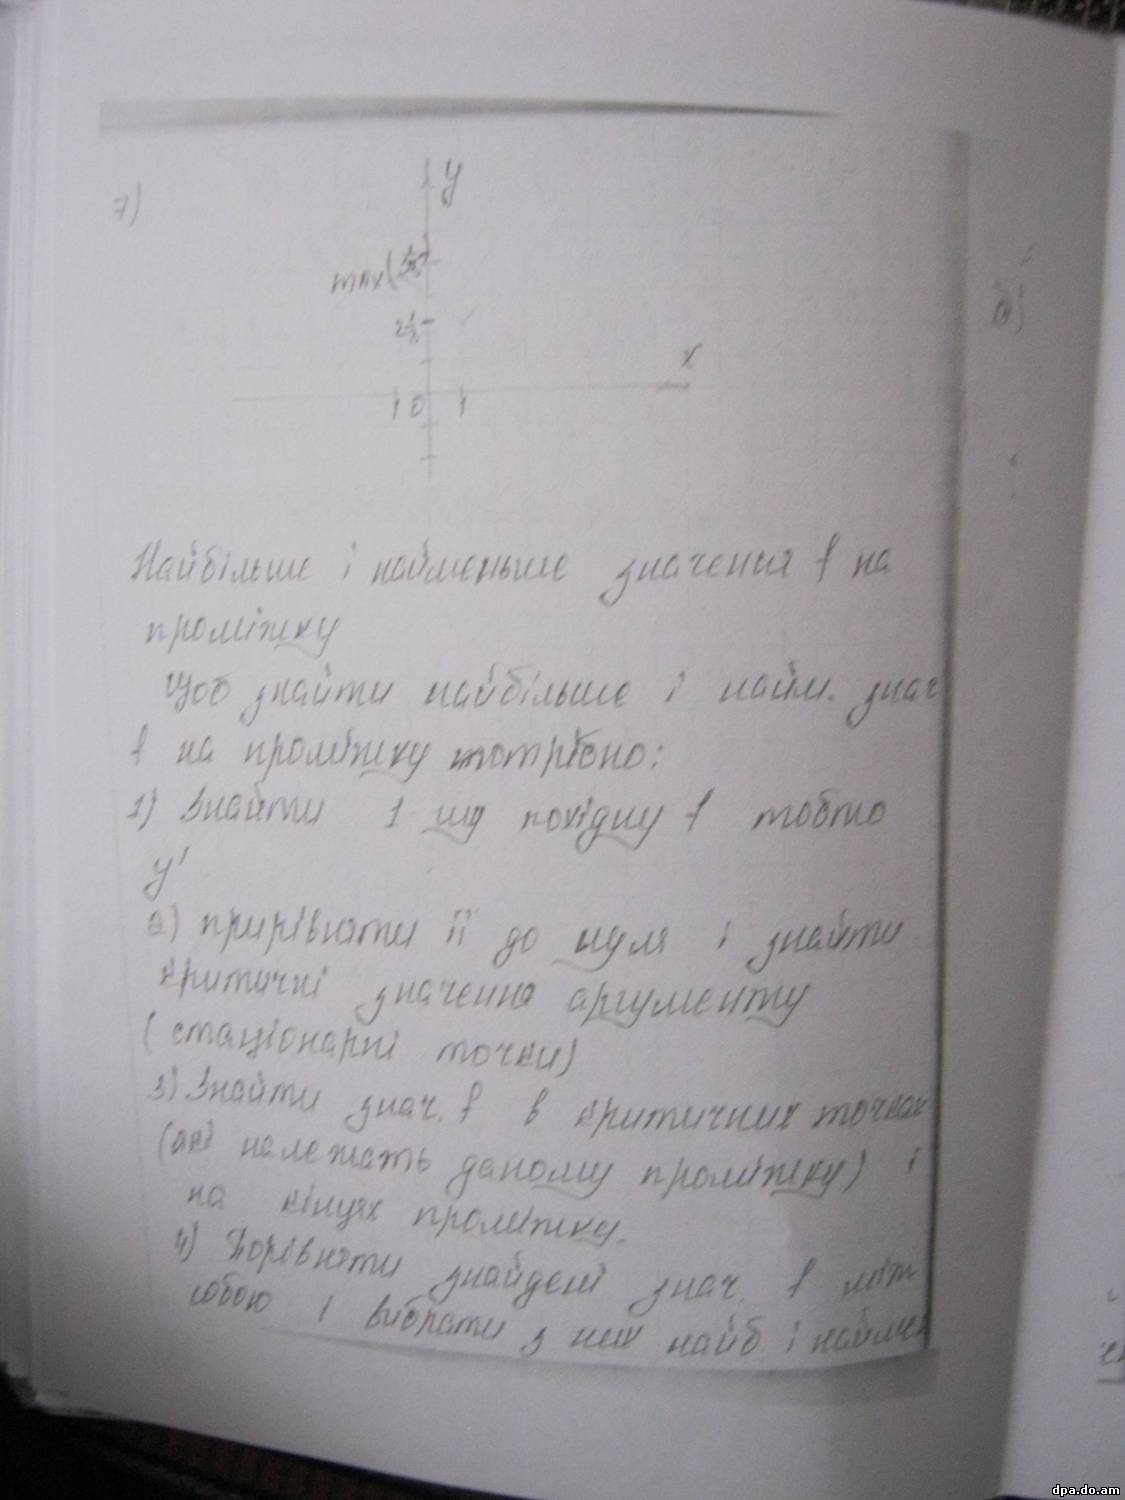 7)
y
max(
2½
x
1 0 1
Найбільше і найменьше значення f на
проміжку
Щоб знайти найбільше і найм. знач
f на проміжку потрібно:
1) Знайти 1 шу похідну f тобто
y'
2) прирівняти її до нуля і знайти
критичні значення аргументу
(стаціонарні точки)
3) Знайти знач. f в критичних точках
(які належать даному проміжку) і
на кінцях проміжку.
4) Порівняти знайдені знач. f між
собою і вибрати з них найб і наймен
dpa.do.am